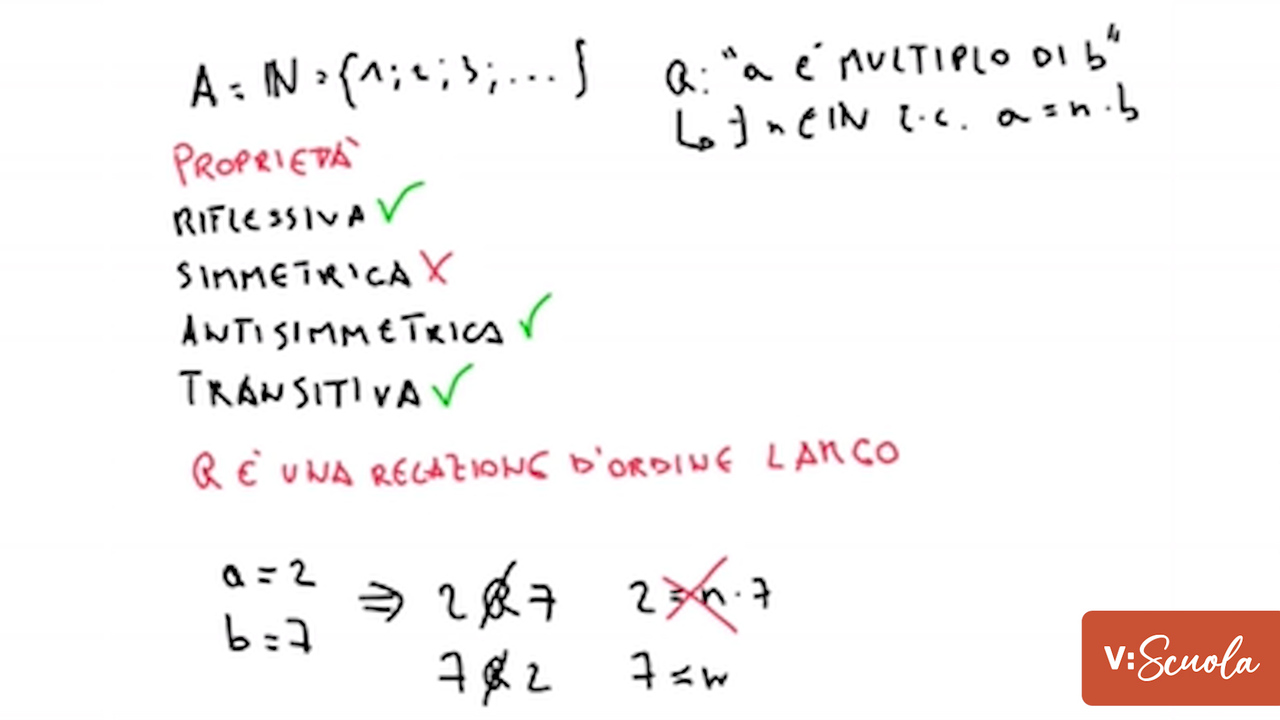 A = ℕ = {1; 2; 3; ... }
R: "a È MULTIPLO DI b"
↳ ∃ n ∈ ℕ t.c. a = n · b
PROPRIETÀ
RIFLESSIVA ✓
SIMMETRICA X
ANTISIMMETRICA ✓
TRANSITIVA ✓
R È UNA RELAZIONE D'ORDINE LARGO
a = 2
b = 7
⇒ 2 R̸ 7 2 = n · 7
7 R̸ 2 7 = n
V:Scuola